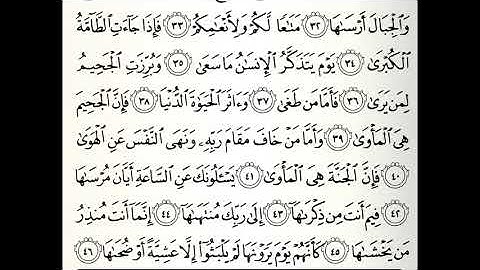 وَٱلْجِبَالَ أَرْسَىٰهَا ٣٢ مَتَـٰعًا لَّكُمْ وَلِأَنْعَـٰمِكُمْ ٣٣ فَإِذَا جَآءَتِ ٱلطَّآمَّةُ
ٱلْكُبْرَىٰ ٣٤ يَوْمَ يَتَذَكَّرُ ٱلْإِنسَـٰنُ مَا سَعَىٰ ٣٥ وَبُرِّزَتِ ٱلْجَحِيمُ
لِمَن يَرَىٰ ٣٦ فَأَمَّا مَن طَغَىٰ ٣٧ وَءَاثَرَ ٱلْحَيَوٰةَ ٱلدُّنْيَا ٣٨ فَإِنَّ ٱلْجَحِيمَ
هِىَ ٱلْمَأْوَىٰ ٣٩ وَأَمَّا مَنْ خَافَ مَقَامَ رَبِّهِۦ وَنَهَى ٱلنَّفْسَ عَنِ ٱلْهَوَىٰ
٤٠ فَإِنَّ ٱلْجَنَّةَ هِىَ ٱلْمَأْوَىٰ ٤١ يَسْـَٔلُونَكَ عَنِ ٱلسَّاعَةِ أَيَّانَ مُرْسَىٰهَا
٤٢ فِيمَ أَنتَ مِن ذِكْرَىٰهَآ ٤٣ إِلَىٰ رَبِّكَ مُنتَهَىٰهَآ ٤٤ إِنَّمَآ أَنتَ مُنذِرُ
مَن يَخْشَىٰهَا ٤٥ كَأَنَّهُمْ يَوْمَ يَرَوْنَهَا لَمْ يَلْبَثُوٓا۟ إِلَّا عَشِيَّةً أَوْ ضُحَىٰهَا ٤٦